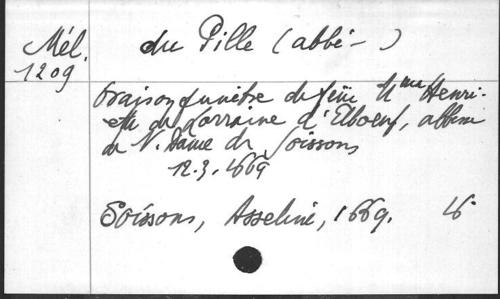 Mél.
1209
du Pille (abbé -)
Oraison funèbre de feüe Mme Henri-
ette de Lorraine d'Elboeuf, abbesse
de N. Dame de Soissons
12.3.1669
Soissons, Asseline, 1669. 4°